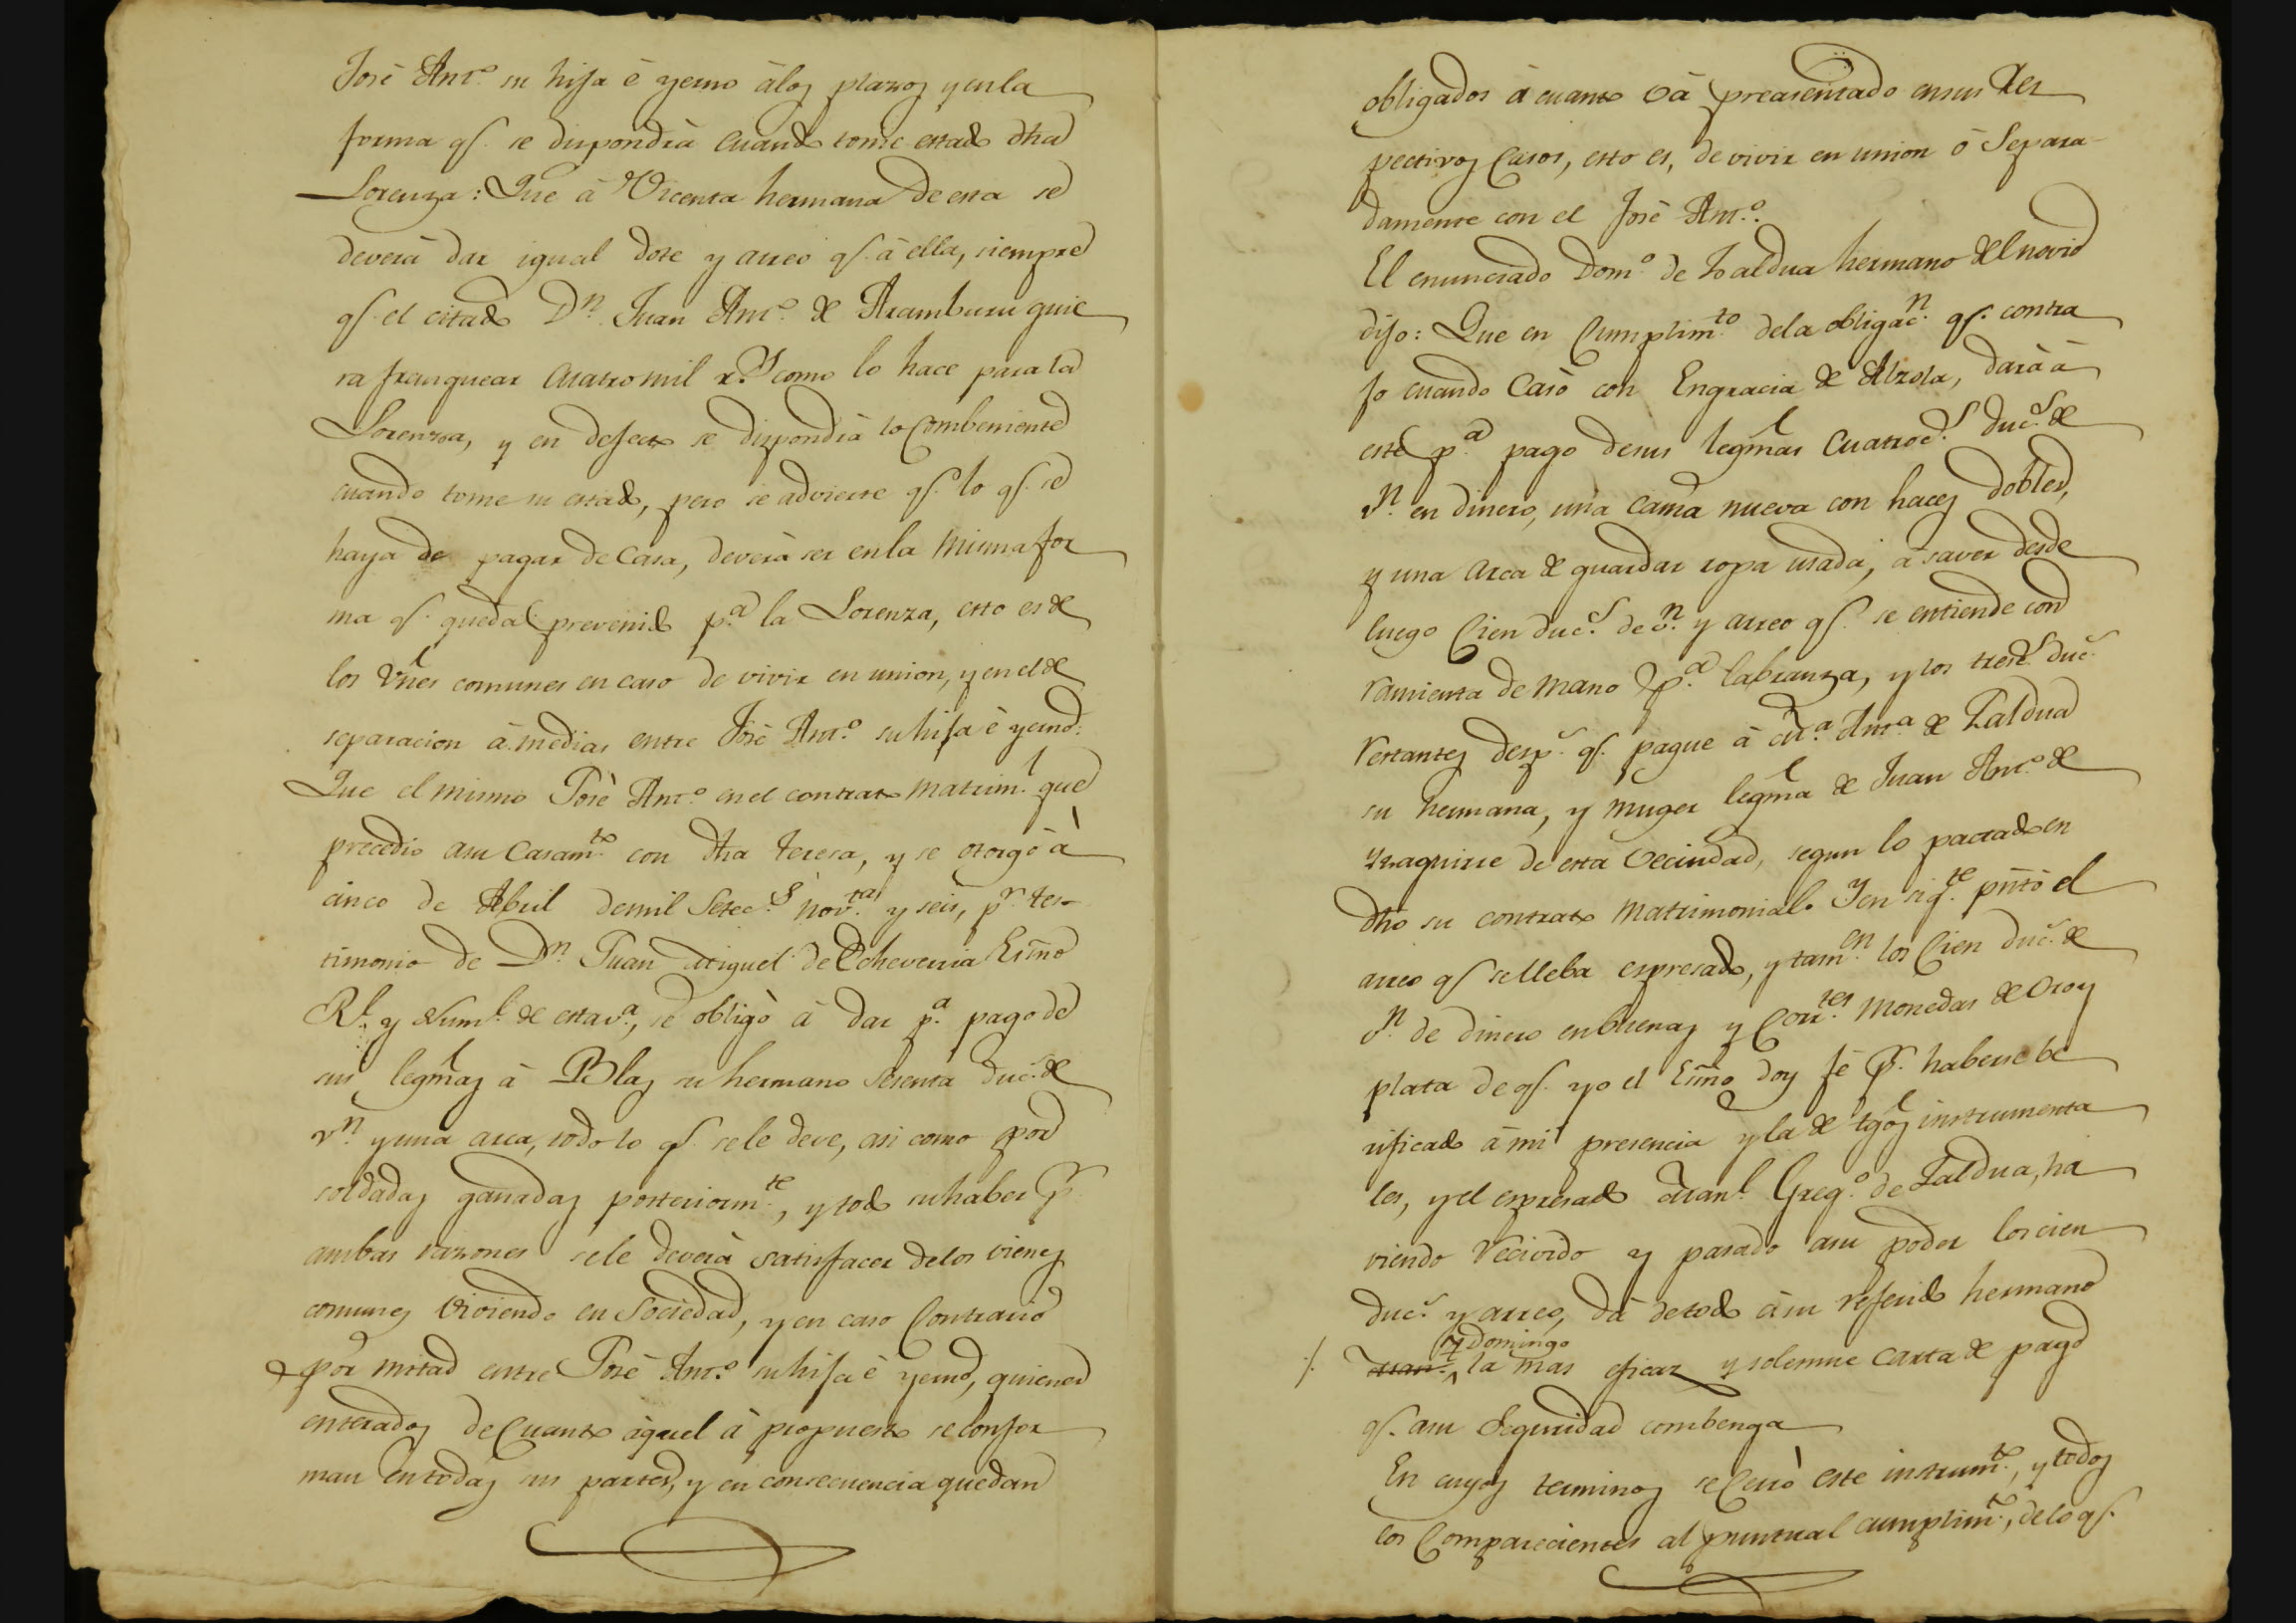 José Ant.º su hija è yerno à los plazos y en la
forma q.e se dispondrà cuando tome estado dha
Lorenza: Que à Vicenta hermana de esta se
deverà dar igual dote y arreo q.e à ella, siempre
q.e el citado D.n Juan Ant.º de Aramburu quie
ra franquear cuatro mil r.s como lo hace para la
Lorenza, y en defecto se dispondrà lo combeniente
cuando tome su estado, pero se advierte q.e lo q.e se
haya de pagar de Casa, deverà ser en la misma for
ma q.e queda prevenido p.a la Lorenza, esto es de
los vnes comunes en caso de vivir en union, y en el de
separacion à medias entre José Ant.º su hija è yerno:
Que el mismo José Ant.º en el contrato matrim.l que
precediò a su Casam.to con dha Teresa, y se otorgò à
cinco de Abril de mil Setec.s nov.ta y seis, p.r tes-
timonio de D.n Juan Miguel de Echeverria Esnno
R.l y Num.l de esta v.a, se obligò à dar p.a pago de
sus legmas à Blas su hermano sesenta duc.s de
v.n y una arca, todo lo q.e se le deve, asi como por
soldadas ganadas posteriorm.te, y todo su haber p.r
ambas razones se le deverà satisfacer de los vienes
comunes viviendo en Sociedad, y en caso Contrario
por mitad entre José Ant.º su hija è yerno, quienes
enterados de Cuanto aquel à propuesto se confor
man en todas sus partes, y en consecuencia quedan
obligados à cuanto và preasentado en sus Res
pectivos Casos, esto es, de vivir en union ò Separa-
damente con el José Ant.º.
El enunciado Dom.º de Zaldua hermano del novio
dijo: Que en Cumplim.to de la obligac.n q.e contra
jo cuando Casò con Engracia de Alzola, darà à
este p.a pago de sus legmas Cuatroc.s duc.s de
v.n en dinero, una cama nueva con haces dobles,
y una arca de guardar ropa usada, à saver desde
luego Cien duc.s de v.n y arreo q.e se entiende con
ramienta de mano p.a labranza, y los tresc.s duc.s
restantes desp.s q.e pague à M.a Ant.a de Zaldua
su hermana, y muger legma de Juan Ant.º de
Yzaguirre de esta Vecindad, segun lo pactado en
dho su contrato matrimonial. Y en sig.te pntò el
arreo q.e se lleba espresado, y tam.en los Cien duc.s de
v.n de dinero en buenas y Corr.tes monedas de Oro y
plata de q.e yo el Esnno doy fè p.r haberse be
rificado à mi presencia y la de tgos instrumenta
les, y el espresado Man.l Greg.º de Zaldua, ha
viendo Recivido y pasado a su poder los cien
duc.s y arreo, dà de todo à su referido hermano
Domingo
/. Man.l la mas eficaz y solemne carta de pago
q.e a su Seguridad combenga
En cuyos terminos se Cerrò este instrum.to, y todos
los Comparecientes al puntual cumplim.to, de lo q.e